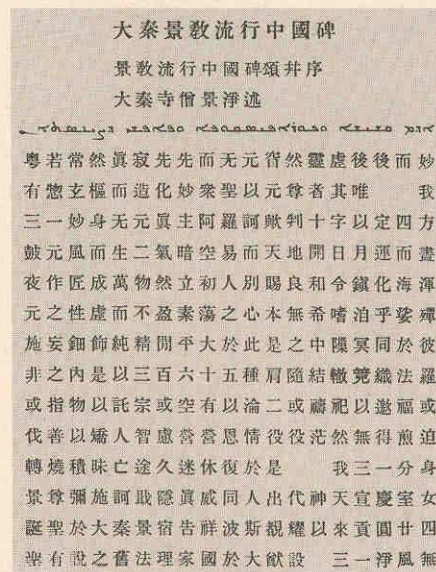 大秦景敎流行中國碑
景敎流行中國碑頌幷序
大秦寺僧景淨述
粵若常然眞寂先先而无元窅然靈虛後後而妙
有惣玄樞而造化妙衆聖以元尊者其唯 我
三一妙身无元眞主阿羅訶歟判十字以定四方
鼓元風而生二氣暗空易而天地開日月運而晝
夜作匠成萬物然立初人別賜良和令鎭化海渾
元之性虛而不盈素蕩之心本無希嗜洎乎娑殫
施妄鈿飾純精閒平大於此是之中隟冥同於彼
非之內是以三百六十五種肩隨結轍競織法羅
或指物以託宗或空有以淪二或禱祀以邀福或
伐善以矯人智慮營營恩情役役茫然無得煎迫
轉燒積昧亡途久迷休復於是 我三一分身
景尊彌施訶戢隱眞威同人出代神天宣慶室女
誕聖於大秦景宿告祥波斯覩耀以來貢圓廿四
聖有說之舊法理家國於大猷設 三一淨風無